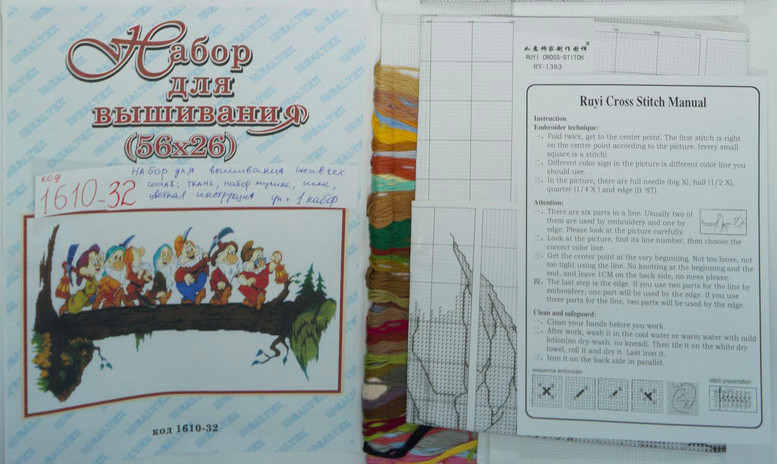 Набор
для
вышивания
(56x26)
код
1610-32
набор для вышивания Idealtex
состав: ткань, набор мулине, игла,
цветная инструкция уп = 1 набор
код 1610-32
RUYI CROSS-STITCH
RY-1383
Ruyi Cross Stitch Manual
Instruction
Embroider technique:
一、Fold twice, get to the center point. The first stitch is right
on the center point according to the picture. (every small
square is a stitch)
二、Different color sign in the picture is different color line you
should use.
三、In the picture, there are full needle (big X), half (1/2 X),
quarter (1/4 X) and edge (B 'ST).
Attention:
一、There are six parts in a line. Usually two of
them are used by embroidery and one by
edge. Please look at the picture carefully.
二、Look at the picture, find its line number, then choose the
correct color line.
三、Get the center point at the very beginning. Not too loose, not
too tight using the line. No knotting at the beginning and the
end, and leave 1CM on the back side, no mess please.
四、The last step is the edge. If you use two parts for the line by
embroidery, one part will be used by the edge. If you use
three parts for the line, two parts will be used by the edge.
Clean and safeguard:
一、Clean your hands before you work.
二、After work, wash it in the cool water or warm water with mild
lotion(no dry-wash, no knead). Then tile it on the white dry
towel, roll it and dry it. Last iron it.
三、Iron it on the back side in parallel.
sequence embroider
stitch presentation